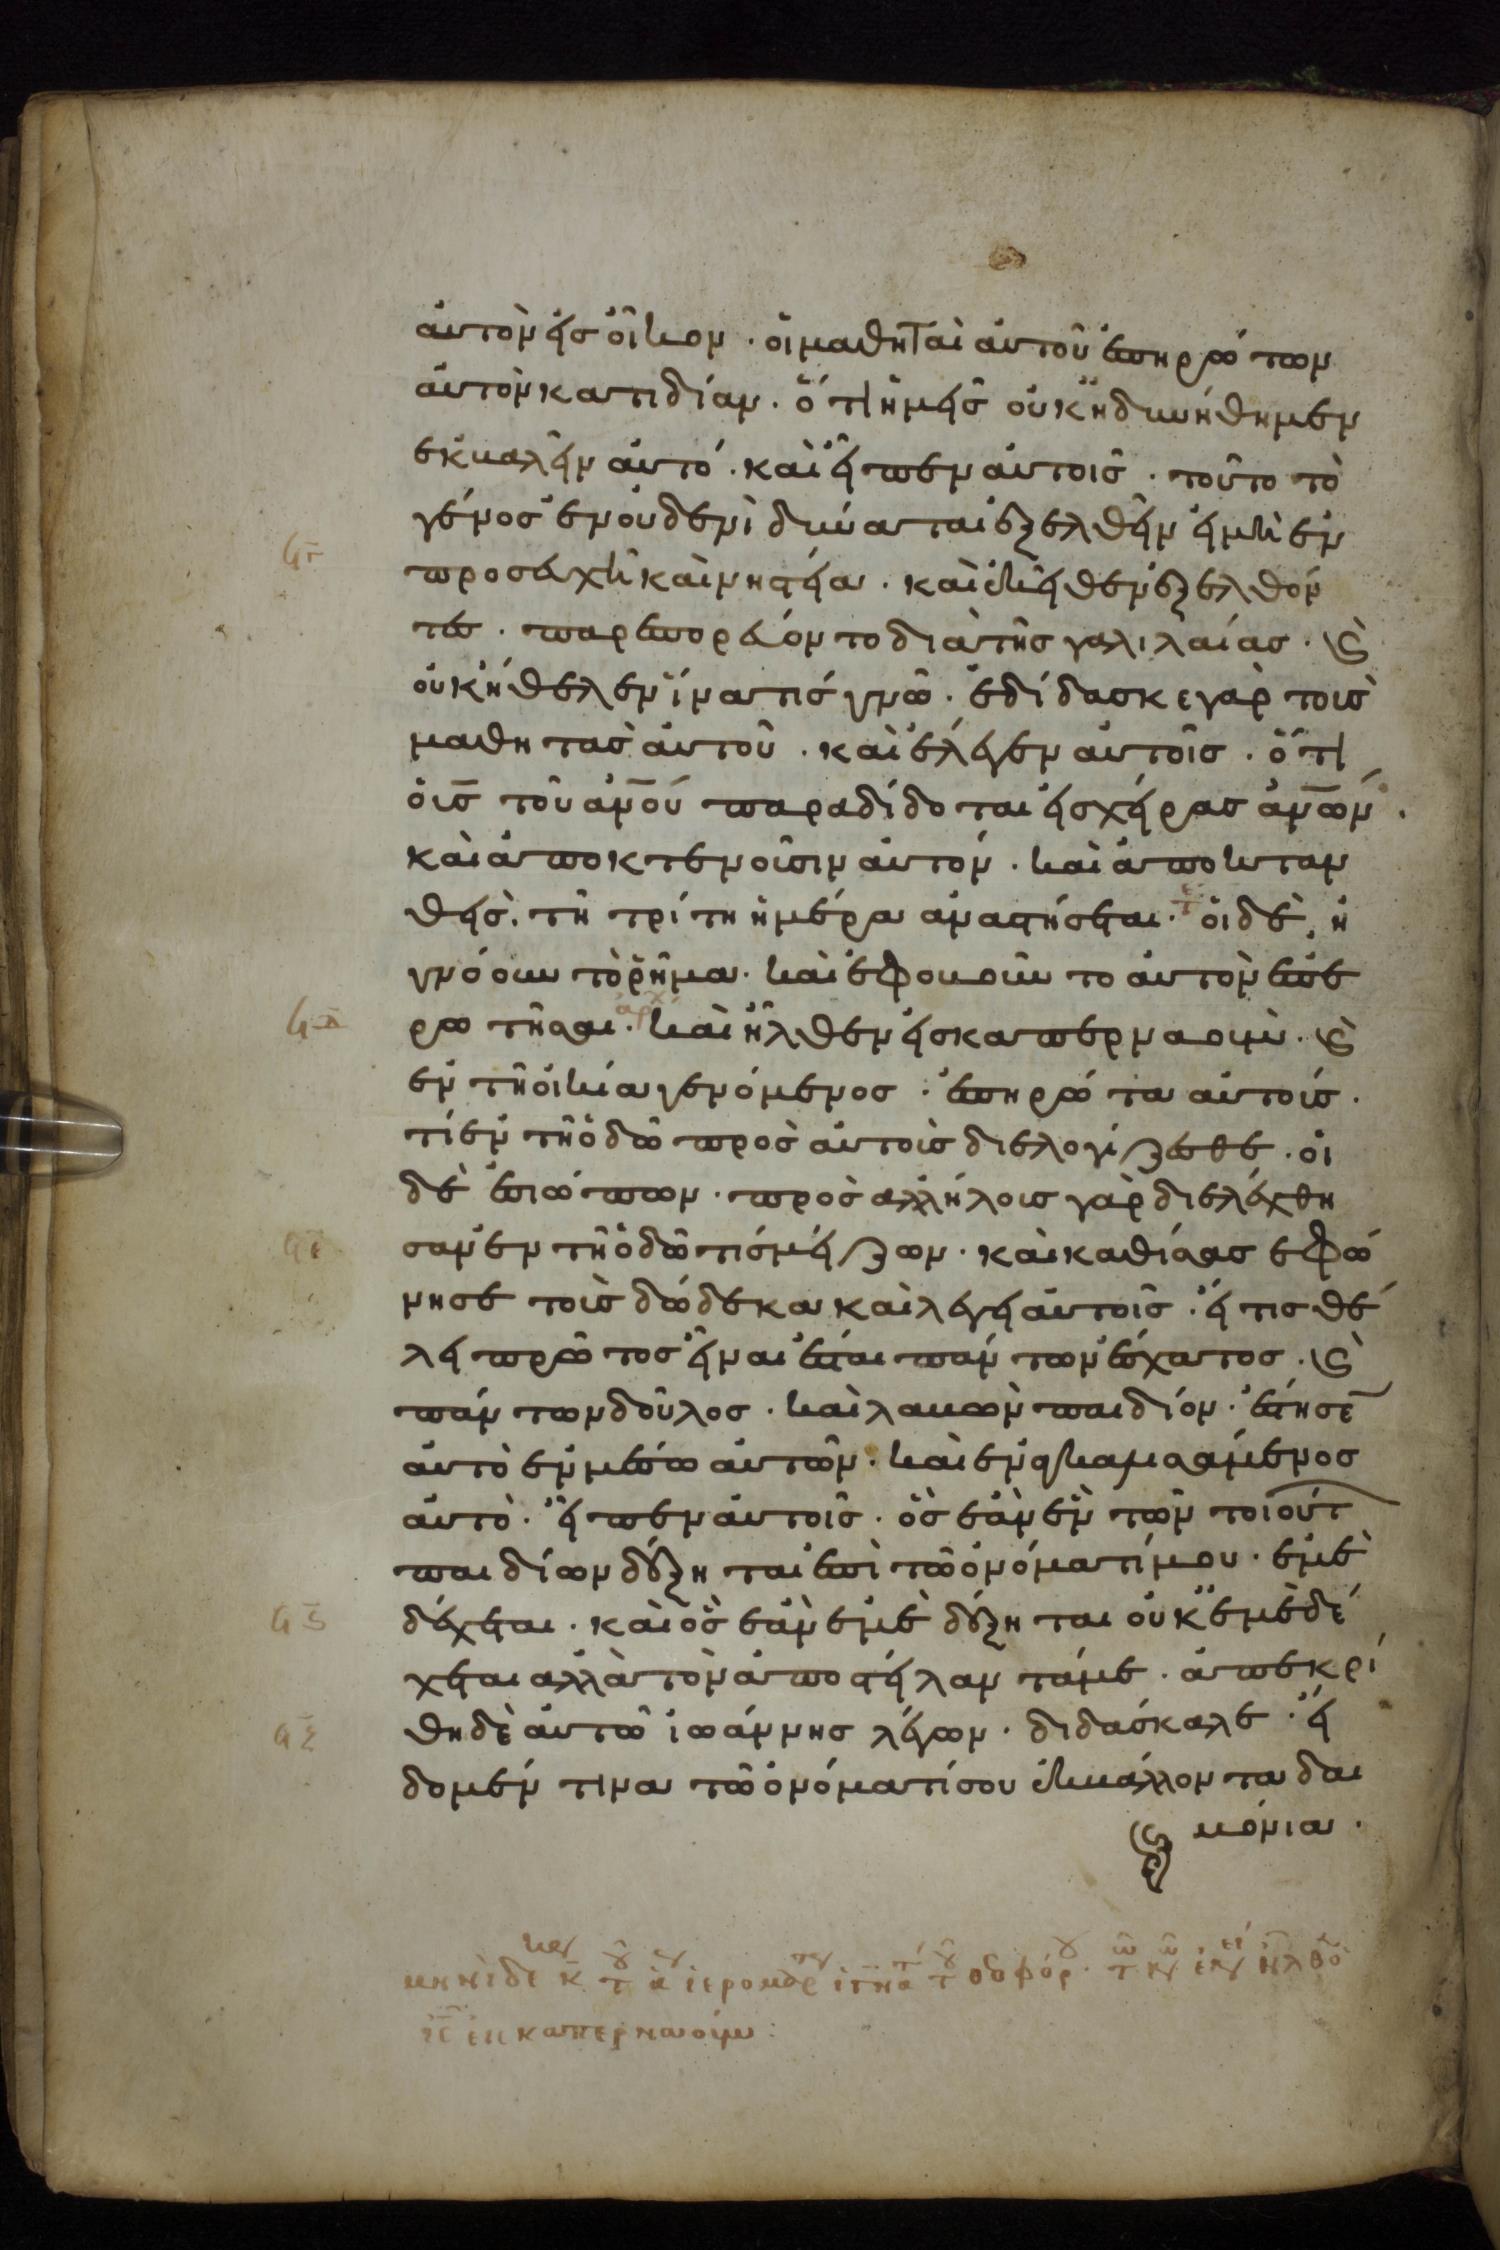 αὐτὸν εἰς οἶκον · οἱ μαθηταὶ αὐτοῦ ἐπηρώτων
αὐτὸν κατιδίαν · ὅτι ἡμεῖς οὐκ ἠδυνήθημεν
ἐκβαλεῖν αὐτό · καὶ εἶπεν αὐτοῖς · τοῦτο τὸ
γένος ἐν οὐδενὶ δύναται ἐξελθεῖν εἰ μὴ ἐν
ϟγ προσευχῇ καὶ νηστεία · καὶ ἐκεῖθεν ἐξελθόν
τες · παρεπορεύοντο διὰ τῆς γαλιλαίας · ϗ
οὐκ ἤθελεν ἵνα τις γνῶ · ἐδίδασκε γὰρ τοὺς
μαθητὰς αὐτοῦ · καὶ ἔλεγεν αὐτοῖς · ὅτι
ὁ υἱς τοῦ ἀνου παραδίδοται εἰς χεῖρας ἀνων ·
καὶ ἀποκτενοῦσιν αὐτόν · καὶ ἀποκταν
θεὶς · τῆ τρίτη ἡμέρα ἀναστήσεται · οἱ δὲ, ἠ
γνόουν τὸ ῥῆμα · καὶ ἐφοβοῦντο αὐτὸν ἐπε
ϟδ ρωτῆσαι · καὶ ἦλθεν εἰς καπερναούμ · ϗ
ἐν τῆ οἰκία γενόμενος · ἐπηρώτα αὐτούς ·
τί ἐν τῆ ὁδῶ πρὸς αὐτοὺς διελογίζεσθε · οἱ
δὲ ἐσιώπων · πρὸς ἀλλήλους γὰρ διελέχθη
ϟε σαν ἐν τῆ ὁδῶ τίς μείζων · καὶ καθίσας ἐφώ
νησε τοὺς δώδεκα καὶ λέγει αὐτοῖς · εἴ τις θέ
λει πρῶτος εἶναι ἔσται πάντων ἔσχατος · ϗ
πάντων δοῦλος · καὶ λαβὼν παιδίον · ἔστησε
αὐτὸ ἐν μέσω αὐτῶν · καὶ ἐναγκαλισάμενος
αὐτὸ · εἶπεν αὐτοῖς · ὃς ἐὰν ἓν τῶν τοιούτ
παιδίων δέξηται ἐπὶ τῶ ὀνόματί μου · ἐμὲ
ϟϛ δέχεται · καὶ ὃς ἐὰν ἐμὲ δέξηται οὐκ ἐμὲ δέ
χεται ἀλλὰ τὸν ἀποστείλαντά με · ἀπεκρί
ϟζ θη δὲ αὐτῶ ἰωάννης λέγων · διδάσκαλε · εἴ
δομέν τινα τῶ ὀνόματί σου ἐκβάλλοντα δαι
μόνια ·
ἰς εἰς καπερναούμ :